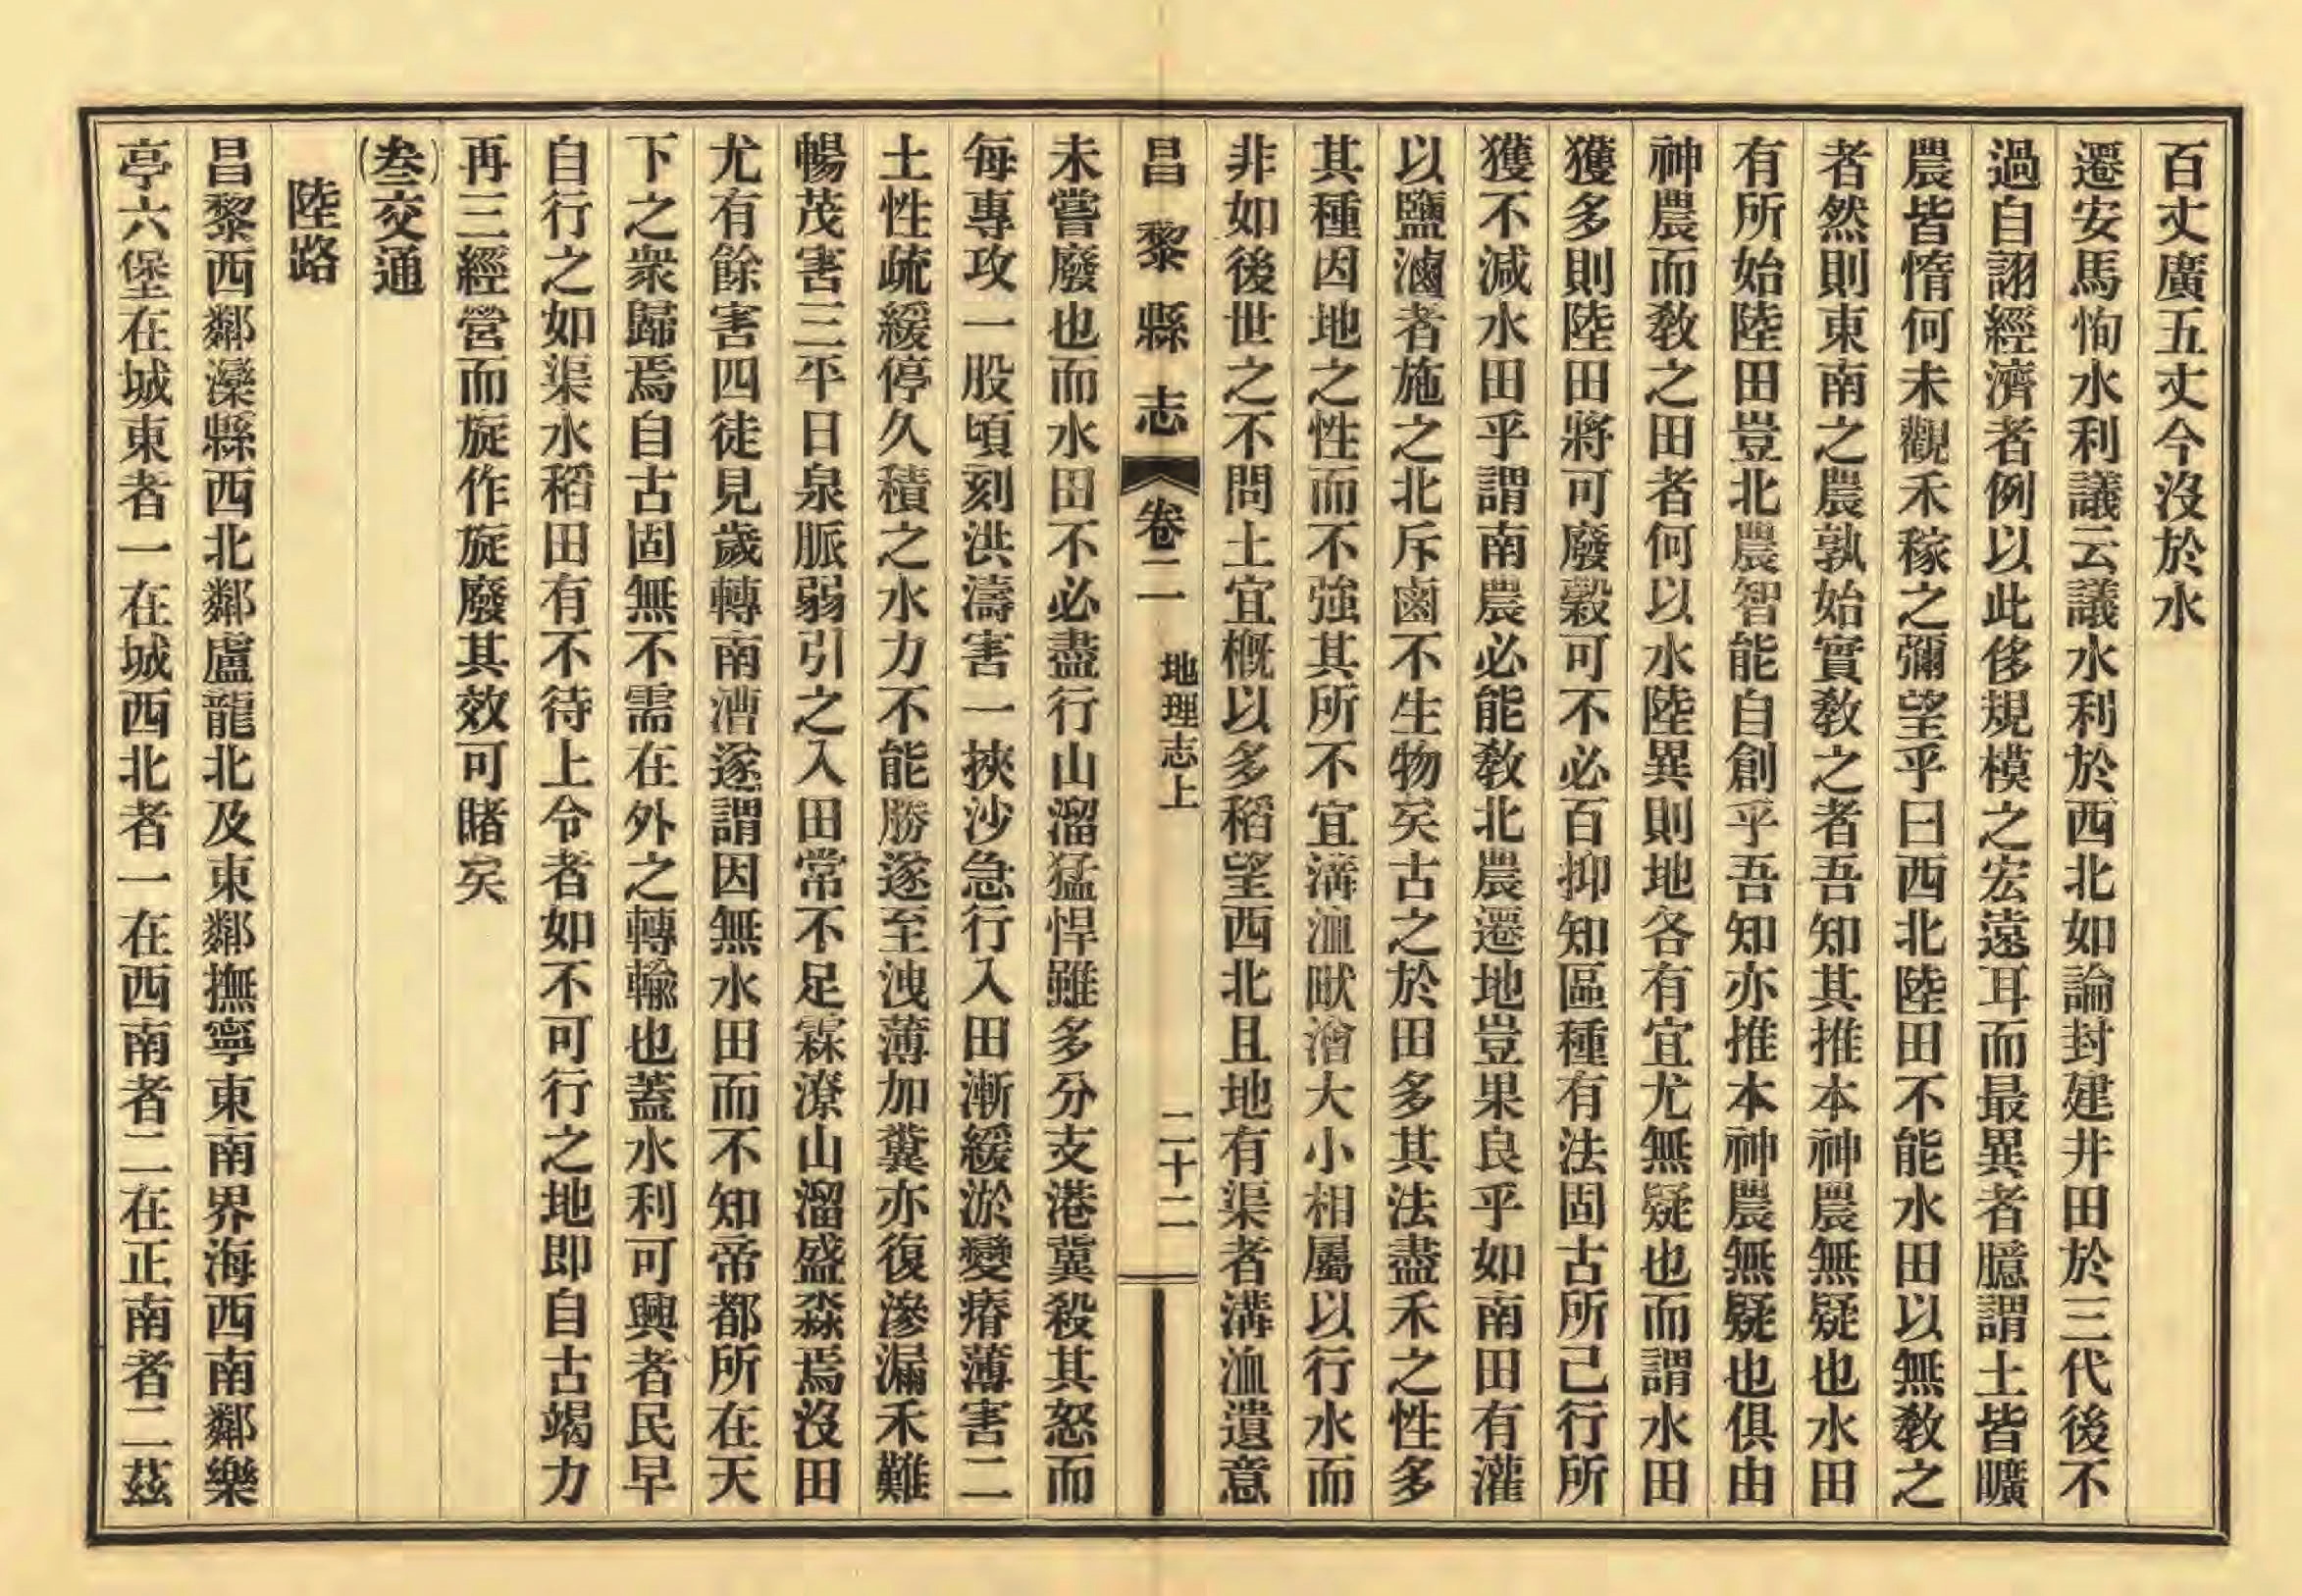 百丈廣五丈今沒於水
遷安馬恂水利議云議水利於西北如論封建井田於三代後不
過自詡經濟者例以此侈規模之宏遠耳而最異者臆謂土皆曠
農皆惰何未觀禾稼之彌望乎曰西北陸田不能水田以無敎之
者然則東南之農孰始實敎之者吾知其推本神農無疑也水田
有所始陸田豈北農智能自創乎吾知亦推本神農無疑也俱由
神農而敎之田者何以水陸異則地各有宜尤無疑也而謂水田
獲多則陸田將可廢穀可不必百抑知區種有法固古所已行所
獲不減水田乎謂南農必能敎北農遷地豈果良乎如南田有灌
以鹽滷者施之北斥鹵不生物矣古之於田多其法盡禾之性多
其種因地之性而不強其所不宜溝洫畎澮大小相屬以行水而
非如後世之不問土宜槪以多稻望西北且地有渠者溝洫遺意
昌黎縣志 卷二 地理志上 二十二
未嘗廢也而水田不必盡行山溜猛悍雖多分支港冀殺其怒而
每專攻一股頃刻洪濤害一挾沙急行入田漸緩淤變瘠薄害二
土性疏緩停久積之水力不能勝遂至洩薄加糞亦復滲漏禾難
暢茂害三平日泉脈弱引之入田常不足霖潦山溜盛淼焉沒田
尤有餘害四徒見歲轉南漕遂謂因無水田而不知帝都所在天
下之衆歸焉自古固無不需在外之轉輸也蓋水利可興者民早
自行之如渠水稻田有不待上令者如不可行之地即自古竭力
再三經營而旋作旋廢其效可睹矣
(叄)交通
陸路
昌黎西鄰灤縣西北鄰盧龍北及東鄰撫寧東南界海西南鄰樂
亭六堡在城東者一在城西北者一在西南者二在正南者二茲